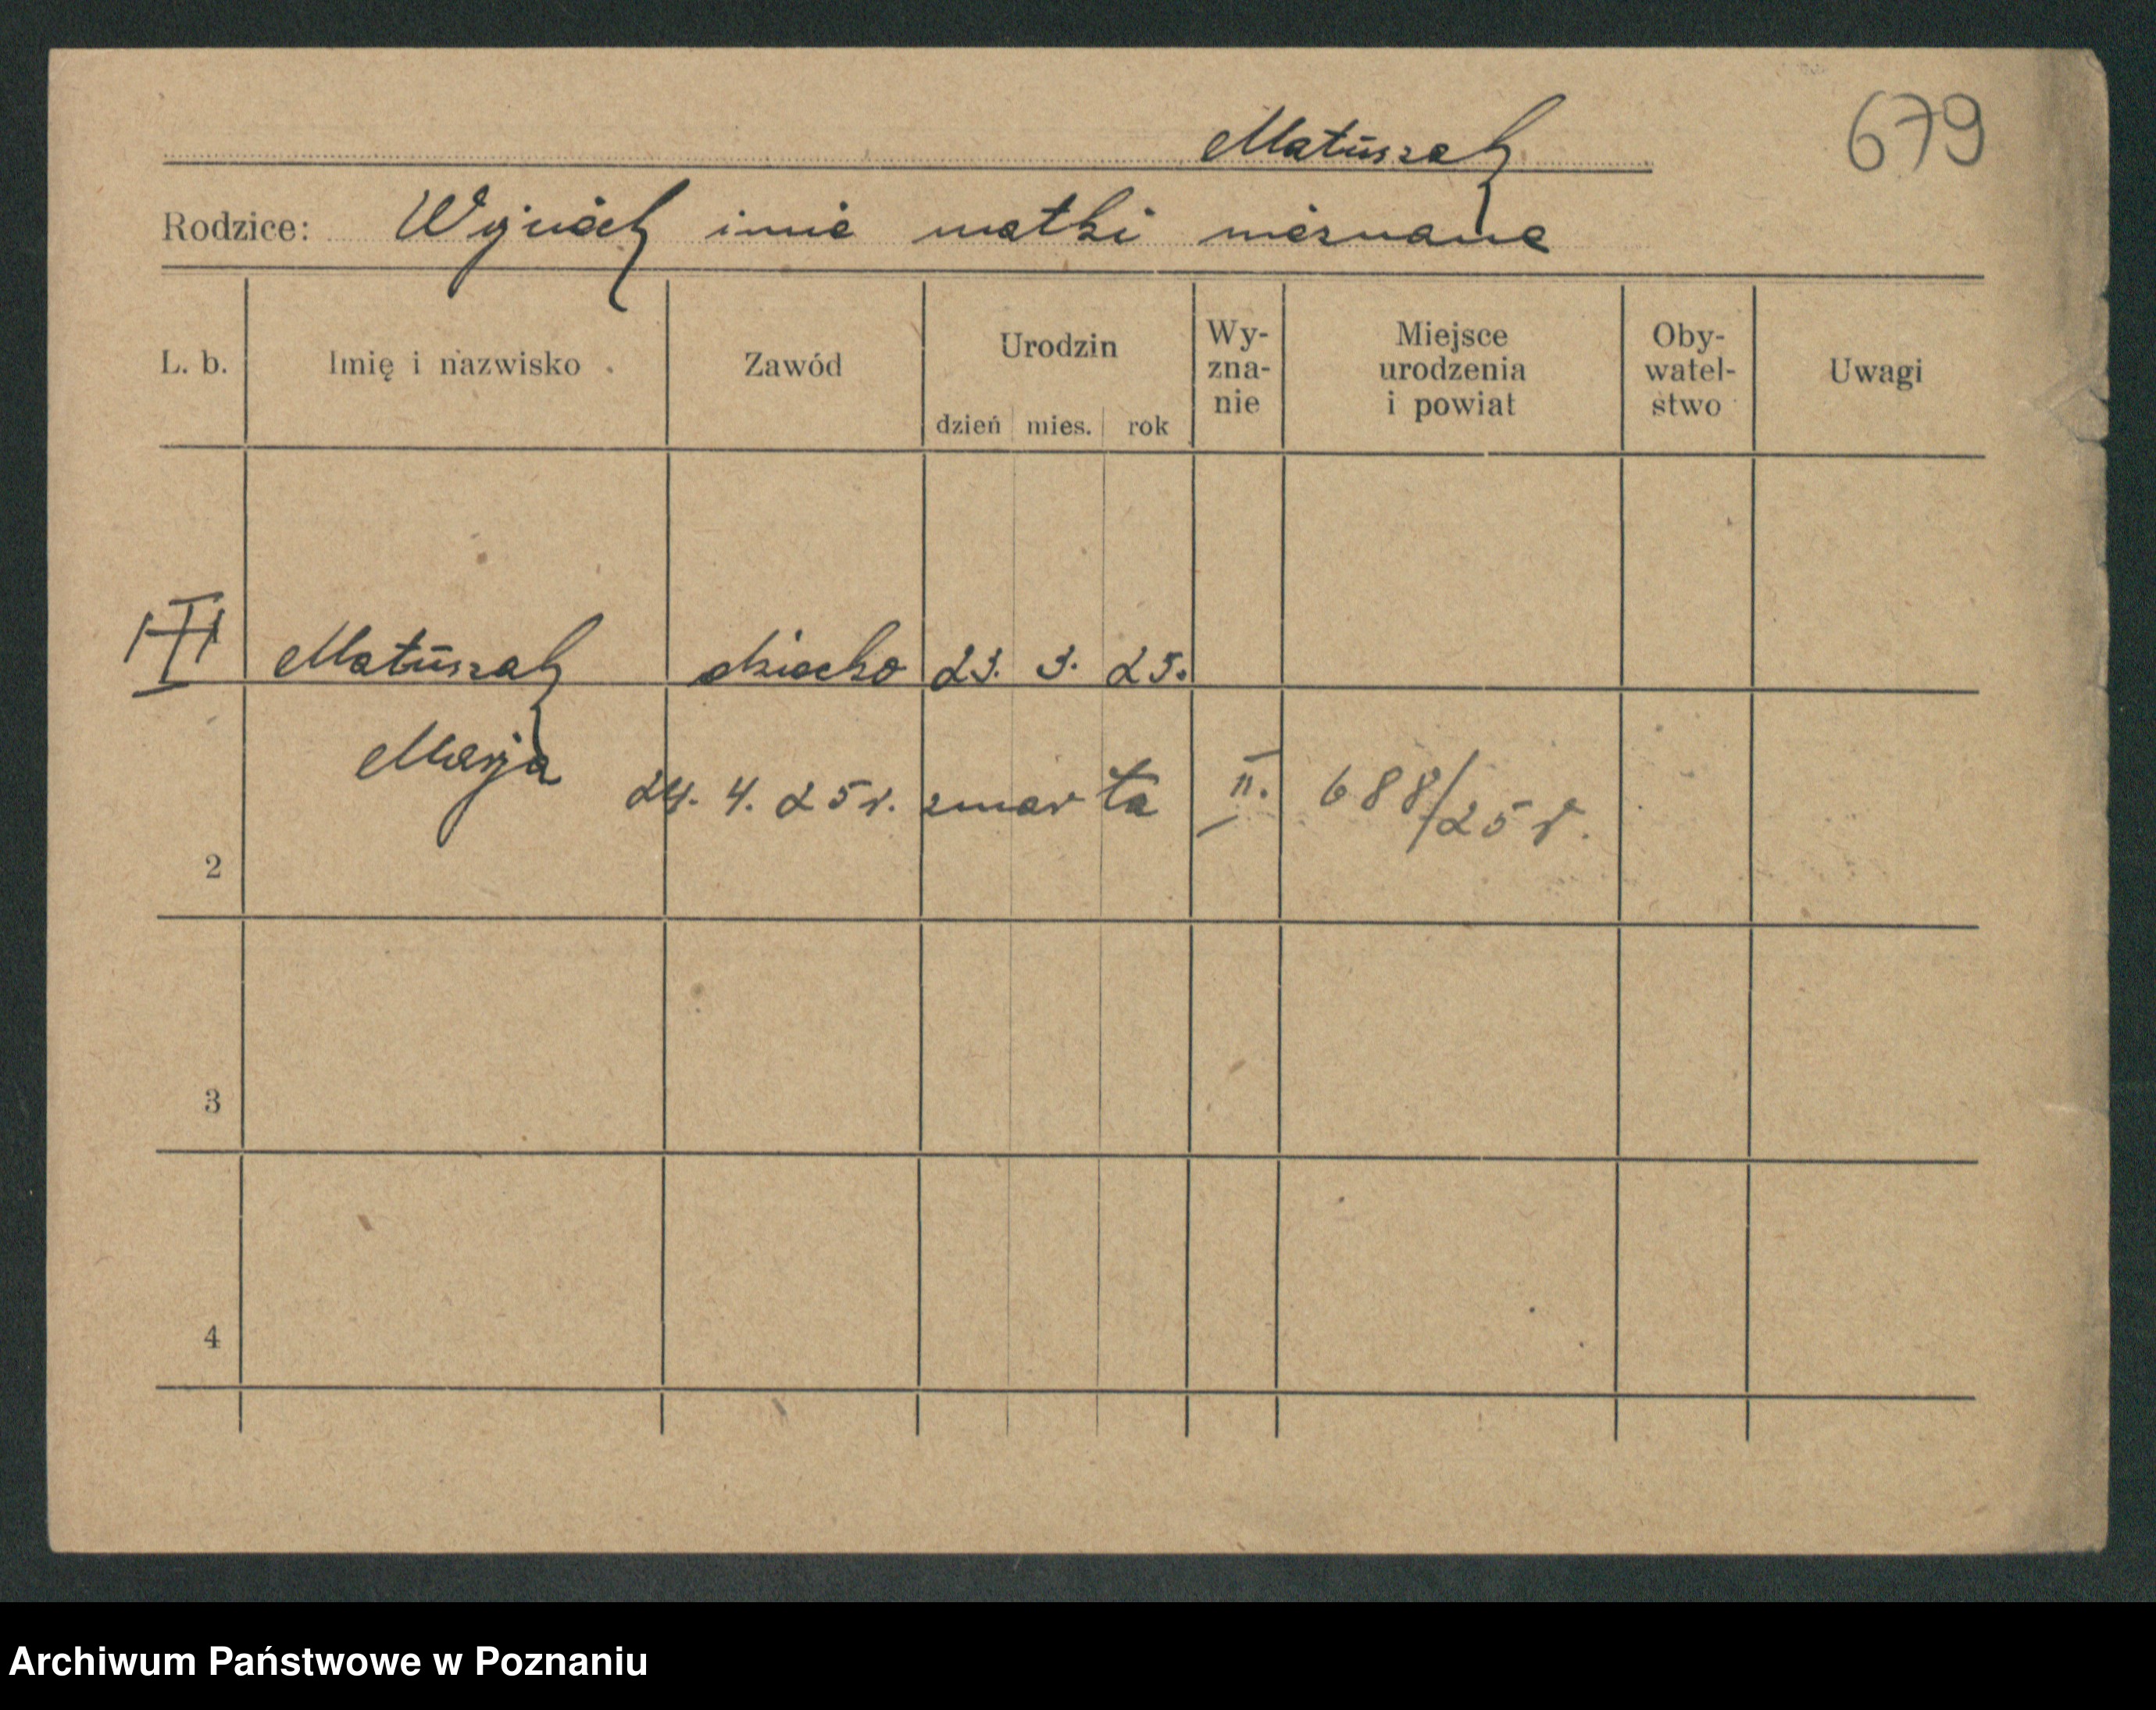 679
Matuszak
Rodzice: Wojciech imie matki nieznane
L. b. Imię i nazwisko Zawód Urodzin dzień mies. rok Wy-zna-nie Miejsce urodzenia i powiat Oby-watel-stwo Uwagi
Matuszak dziecko 23. 3. 25.
Marja
24. 4. 25 r. zmarta II. 688/25 r.
2
3
4
Archiwum Państwowe w Poznaniu